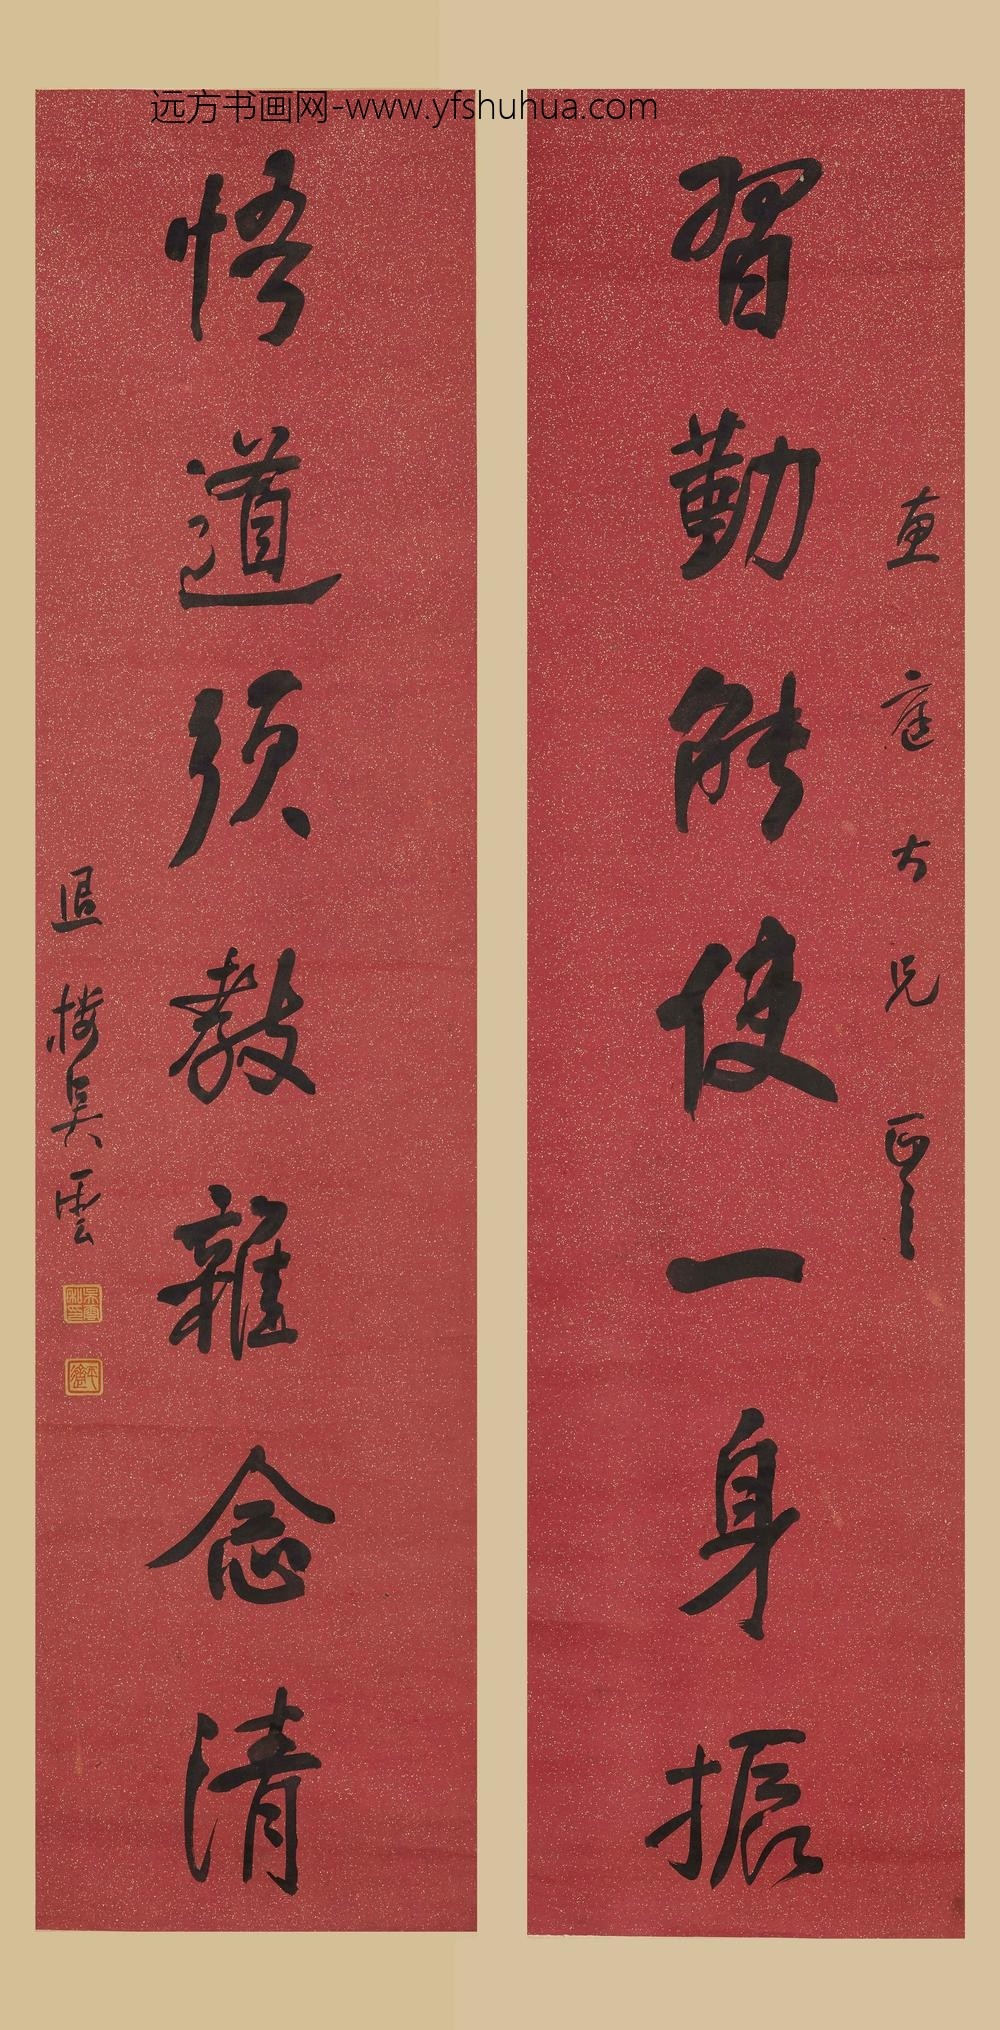 远方书画网-www.yfshuhua.com
直庭大兄正之
習勤能使一身振
悟道須教雜念清
退樓吳雲